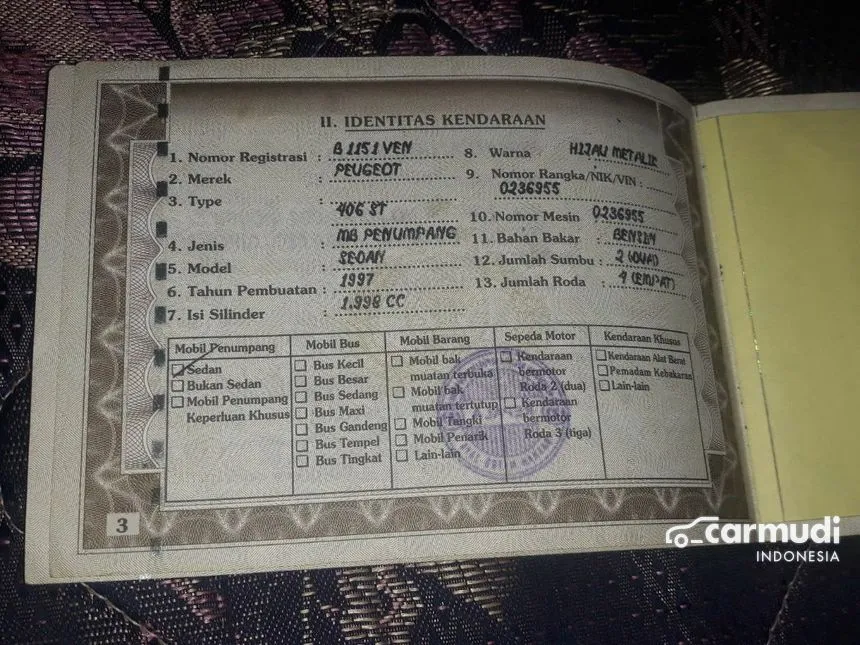 II. IDENTITAS KENDARAAN
1. Nomor Registrasi : B 1151 VEN
2. Merek : PEUGEOT
3. Type : 406 ST
4. Jenis : MB PENUMPANG
5. Model : SEDAN
6. Tahun Pembuatan : 1997
7. Isi Silinder : 1.998 CC
8. Warna HIJAU METALIK
9. Nomor Rangka/NIK/VIN :
0236955
10. Nomor Mesin 0236955
11. Bahan Bakar : BENSIN
12. Jumlah Sumbu : 2 (DUA)
13. Jumlah Roda : 4 (EMPAT)
Mobil Penumpang
Sedan
Bukan Sedan
Mobil Penumpang
Keperluan Khusus
Mobil Bus
Bus Kecil
Bus Besar
Bus Sedang
Bus Maxi
Bus Gandeng
Bus Tempel
Bus Tingkat
Mobil Barang
Mobil bak
muatan terbuka
Mobil bak
muatan tertutup
Mobil Tangki
Mobil Penarik
Lain-lain
Sepeda Motor
Kendaraan
bermotor
Roda 2 (dua)
Kendaraan
bermotor
Roda 3 (tiga)
Kendaraan Khusus
Kendaraan Alat Berat
Pemadam Kebakaran
Lain-lain
3
carmudi
INDONESIA